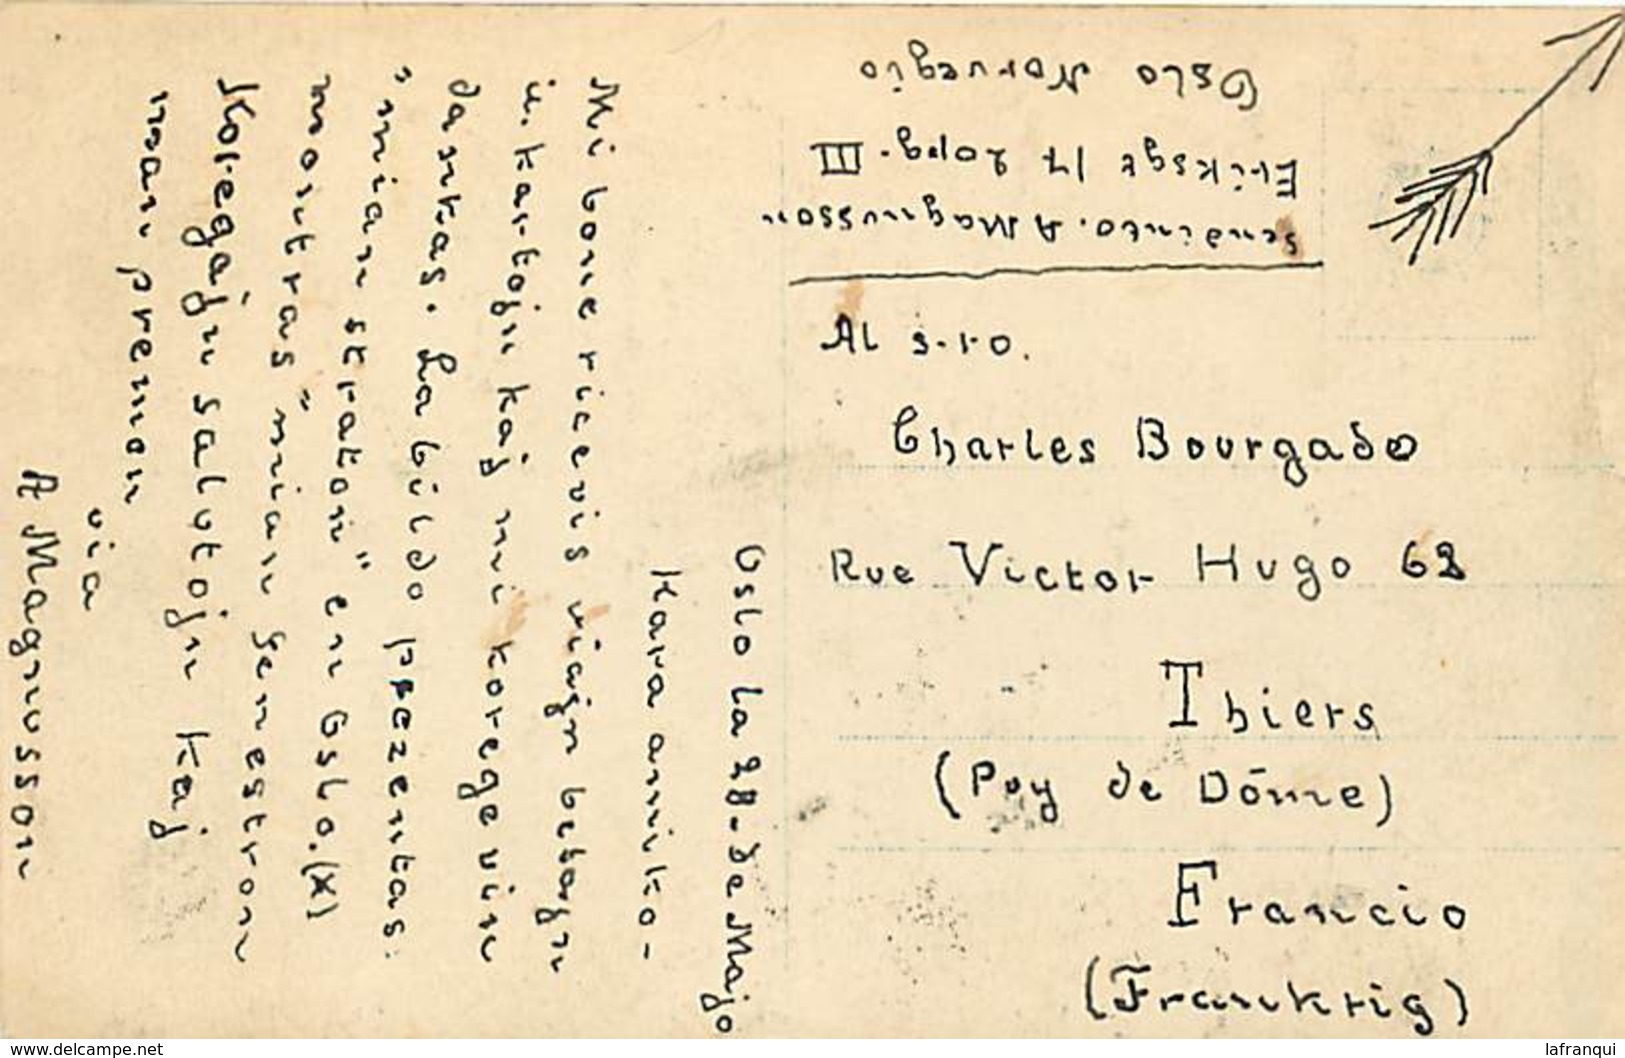 Oslo la 28-de Majo
Kara amiko-
Mi bone ricevis viajn belajn
il. kartojn kaj mi kore gevin
dankas. La bildo prezentas:
"mian straton" en Oslo. (X)
montras "mian fenestron
Koregajn salutojn kaj
man premon
via
A Magnusson
sendinto. A Magnusson
Eriksgt 17 2opg. III
Oslo Norvegio
Al s-ro.
Charles Bourgado
Rue Victor Hugo 62
Thiers
(Puy de Dôme)
Francio
(Frankrig)
www.delcampe.net
lafranqui